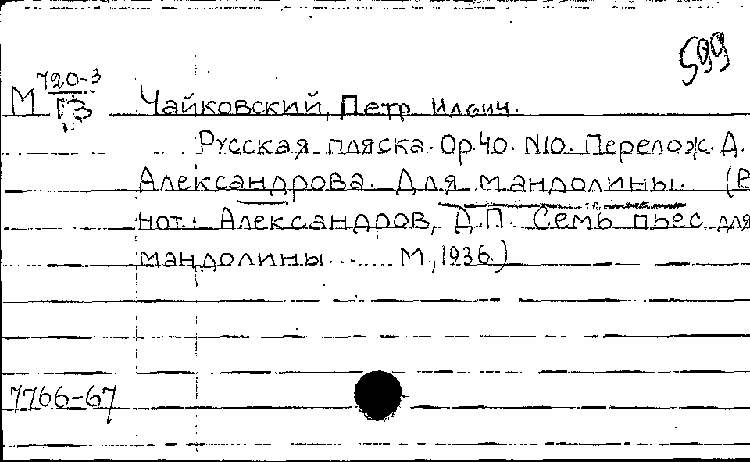 599
М 720-3
ТЗ
Чайковский, Петр Ильич.
Русская пляска. Op.40. N10. Перелож. Д.
Александрова. Для мандолины. (В
нот.: Александров, Д.П. Семь пьес для
мандолины ...... М., 1936.)
7766-67